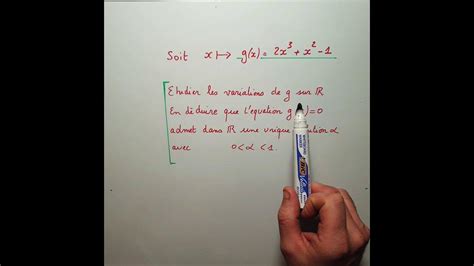 Soit x ↦ g(x) = 2x³ + x² - 1
Etudier les variations de g sur ℝ
En déduire que l'équation g )=0
admet dans ℝ une unique ution α
avec 0 < α < 1.